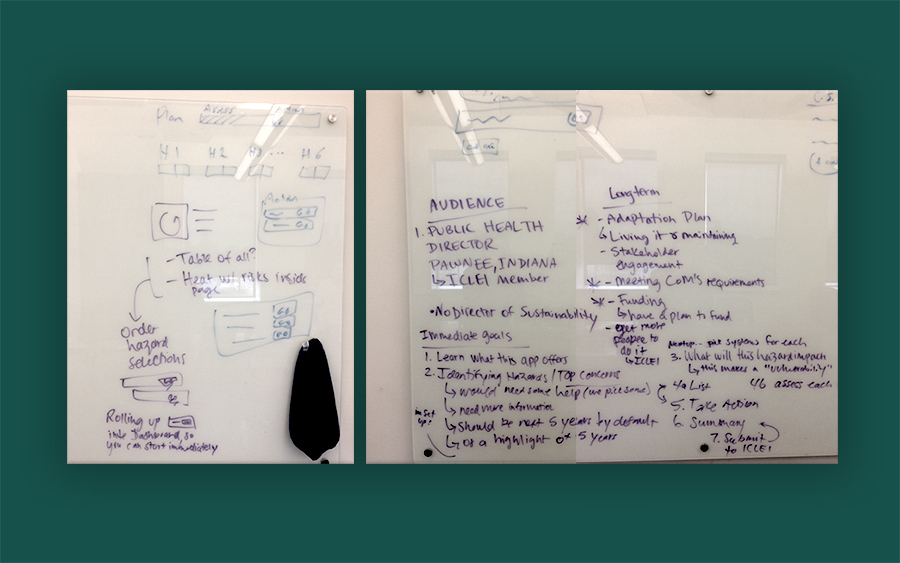 Plan
Assess
Action
H1 H2 H3 ... H6
Action
- Table of all?
- Heat w/ risks inside
page
Order
hazard
selections
Rolling up
into Dashboard, so
you can start immediately
AUDIENCE
1. PUBLIC HEALTH
DIRECTOR
PAWNEE, INDIANA
↳ ICLEI member
• No Director of Sustainability
Immediate goals
1. Learn what this app offers
2. Identifying Hazards / TOP concerns
↳ would need some help (we pick some)
↳ need more information
↳ should be next 5 years by default
↳ or a highlight of 5 years
Longterm
- Adaptation Plan
↳ Living it & maintaining
- Stakeholder
engagement
- meeting CoM's requirements
- Funding
↳ have a plan to fund
- get more
people to
do it
↳ ICLEI
pick systems for each
3. What will this hazard impact
↳ this makes a "vulnerability"
4a List
4b assess each
5. Take Action
6. Summary
7. Submit
to ICLEI